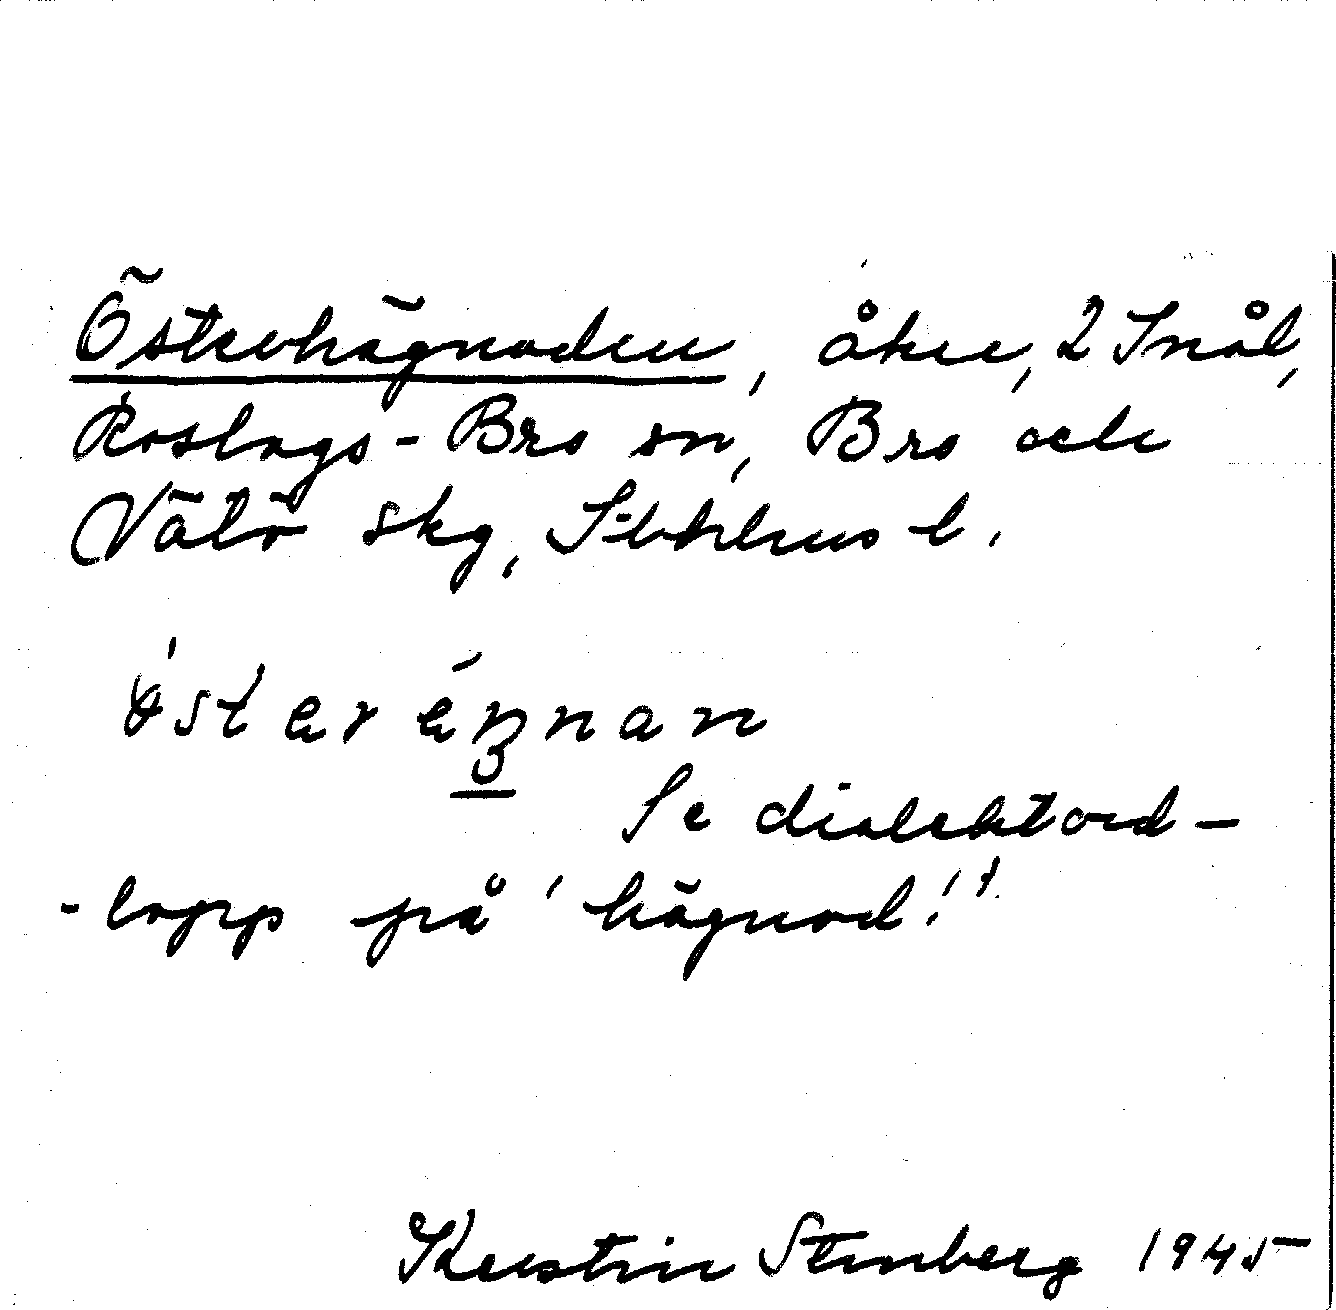 Österhägnaden, åker, 2 Snål,
Roslags-Bro sn, Bro och
Vätö skg, Sthlms l.
Se dialektord-
-lapp på 'hägnad'!
Kerstin Stenberg 1945